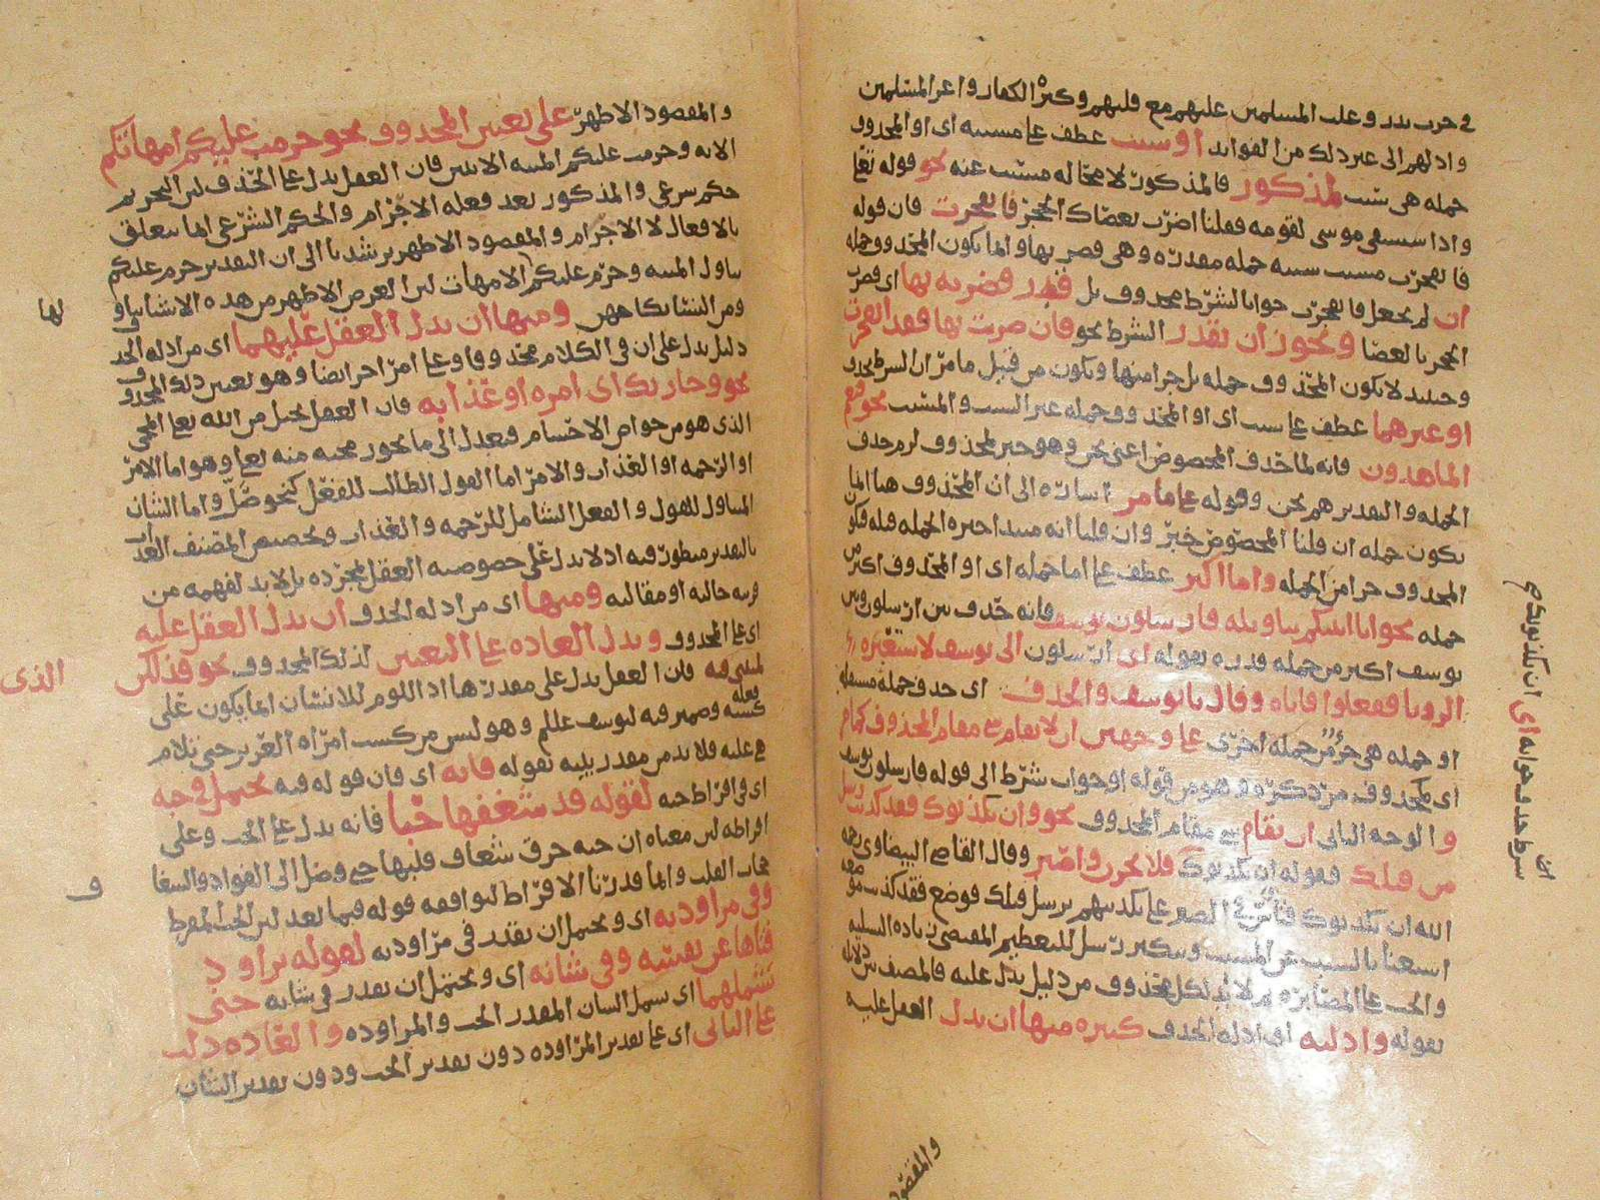 في حرب بدر وغلب المسلمين عليهم مع قلتهم وكثرة الكفار واعز المسلمين
واذلهم الى غير ذلك من الفوايد او سبب عطف على مسببه اى او المحذوف
جمله هى سبب لمذكور فالمذكور لا محاله مسبب عنه نحو قوله تعا
واذا استسقى موسى لقومه فقلنا اضرب بعصاك الحجر فانفجرت فان قوله
فانفجرت مسبب سببه جمله مقدره وهى فضربه بها وانما يكون المحذوف جمله
ان لم يجعل فانفجرت جوابا لشرط محذوف بل قدر فضربه بها اى فضرب
الحجر بالعصا ويجوز ان يقدر الشرط نحو فان ضربت بها فقد انفجرت
وحينيذ لا يكون المحذوف جمله بل جزا منها ويكون من قبيل ما مر ان الشرط محذوف
او غيرهما عطف على سبب اى او المحذوف جمله غير السبب والمسبب نحو فنعم
الماهدون فانه لما حذف المخصوص اعنى نحن وهو خبر لمحذوف لزم حذف
الجمله والتقدير هم نحن وقوله على ما مر اشاره الى ان المحذوف هنا انما
يكون جمله ان قلنا المخصوص خبر وان قلنا انه مبتدا خبره الجمله قبله فيكون
المحذوف جزا من الجمله واما اكثر عطف على اما جمله اى او المحذوف اكثر من
جمله نحو انا انبئكم بتاويله فارسلون يوسف فانه حذف بين ارسلون وبين
يوسف اكثر من جمله قدره بقوله اى ارسلون الى يوسف لاستعبره
الرويا ففعلوا فاتاه وقال يا يوسف والحذف اى حذف جمله مستقله
او جمله هى جزء من جمله اخرى على وجهين ان لا يقام شى مقام المحذوف كما مر
اى المحذوف من ذكره وهو من قوله او جواب شرط الى قوله فارسلون يوسف
والوجه الثانى ان يقام شى مقام المحذوف نحو وان يكذبوك فقد كذبت رسل
من قبلك فقوله ان يكذبوك فلا تحزن واصبر وقال القاضى البيضاوى رحمه
الله ان يكذبوك فتاس فى الصبر على تكذيبهم برسل قبلك فوضع فقد كذبت موضعه
استغنا بالسبب عن المسبب وتنكير رسل للتعظيم المقتضى زياده التسليه
والحث على المصابره ثم لا بد لكل محذوف من دليل يدل عليه فالمصنف بين دلايله
بقوله وادلته اى ادله الحذف كثيره منها ان يدل العقل عليه
ان يكذبوك
اى
شرط حذف جوابه
والمقصود
والمقصود الاظهر على تعيين المحذوف نحو حرمت عليكم امهاتكم
الايه وحرمت عليكم الميته الايتين فان العقل يدل على الحذف لان التحريم
حكم شرعى والمذكور بعد فعله الاجرام والحكم الشرعى انما يتعلق
بالافعال لا الاجرام والمقصود الاظهر يرشدنا الى ان التقدير حرم عليكم
تناول الميته وحرم عليكم الامهات لان الغرض الاظهر من هذه الاشيا تناولها
ومن النسا نكاحهن ومنها ان يدل العقل عليهما اى من ادله الحذف
دليل يدل على ان فى الكلام محذوفا وعلى امر اخر ايضا وهو تعيين ذلك المحذوف
نحو وجاء ربك اى امره او عذابه فان العقل يحيل من الله تعا المجى
الذى هو من خواص الاجسام فيعدل الى ما يجوز مجيه منه تعا وهو اما الامر
او الرحمه او العذاب والامر اما القول الطالب للفعل كنحو صل واما الشان
المتناول للقول والفعل الشامل للرحمه والعذاب وتخصيص المصنف العذاب
بالتقدير منظور فيه اذ لا يدل على خصوصيه العقل المجرده بل لا بد لفهمه من
قرينه حاليه او مقاليه ومنها اى من ادله الحذف ان يدل العقل عليه
اى على المحذوف ويدل العاده على التعيين لذلك المحذوف نحو فذلكن الذى
لمتننى فيه فان العقل يدل على مقدر هنا اذ اللوم للانسان انما يكون على
كسبه وضمير فيه ليوسف عللم وهو ليس من كسب امراه العزيز حتى تلام
هى عليه فلا بد من مقدر يليه بقوله فانه اى فان قوله فيه يحتمل فى حبه
اى فى افراط حبه لقوله قد شغفها حبا فانه يدل على الحب وعلى
افراطه لان معناه ان حبه خرق شغاف قلبها حتى وصل الى الفواد والشغاف
حجاب القلب وانما قدرنا الافراط ليوافقه قوله فيما بعد لان الحب المفرط
وفى مراودته اى ويحتمل ان يقدر فى مراودته لقوله تراود
فتاها عن نفسه وفى شانه اى ويحتمل ان يقدر فى شانه حتى
تشملهما اى يشمل الشان المقدر الحب والمراوده والعاده دلت
على الثانى اى على تقدير المراوده دون تقدير الحب ودون تقدير الشان